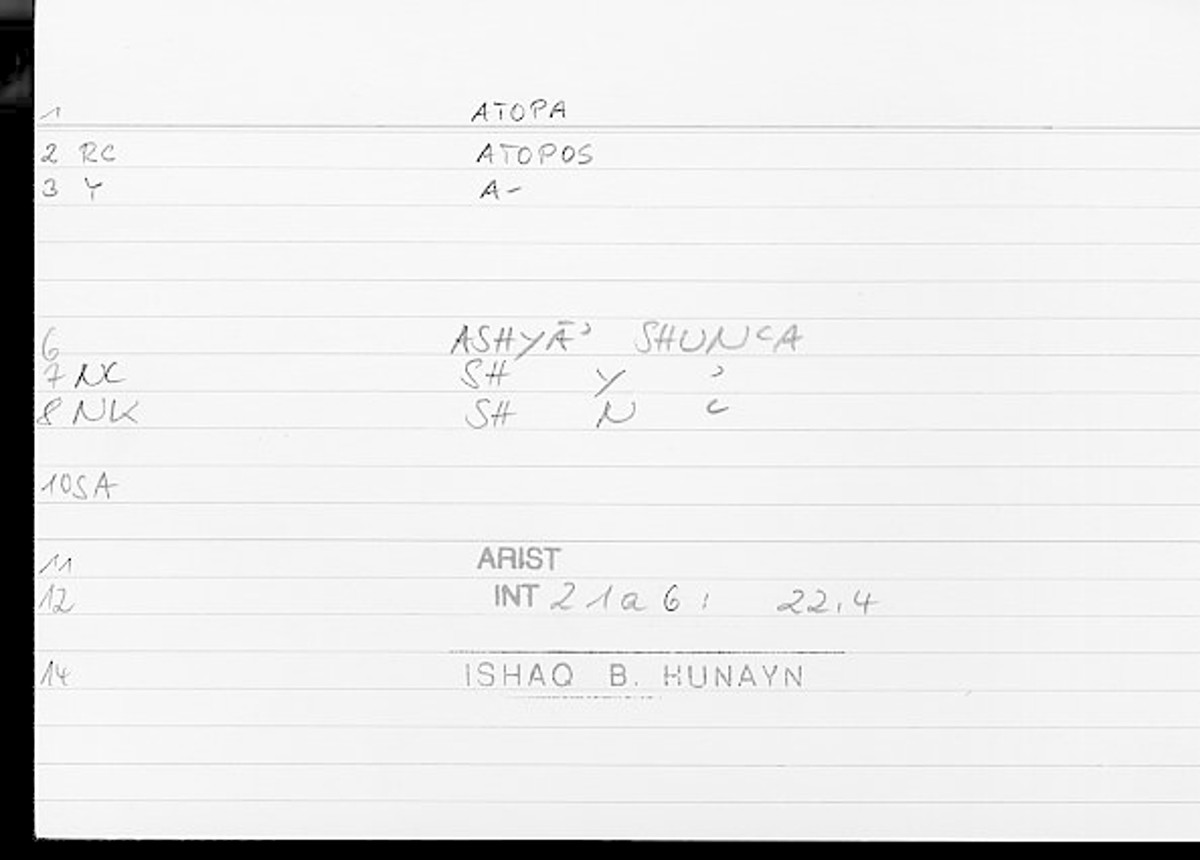 1 ATOPA
2 RC ATOPOS
3 Y A-
6 ASHYĀʾ SHUNʿA
7 NC SH Y ʾ
8 NK SH N ʿ
10 SA
11 ARIST
12 INT 21a6: 22,4
14 ISHAQ B. HUNAYN